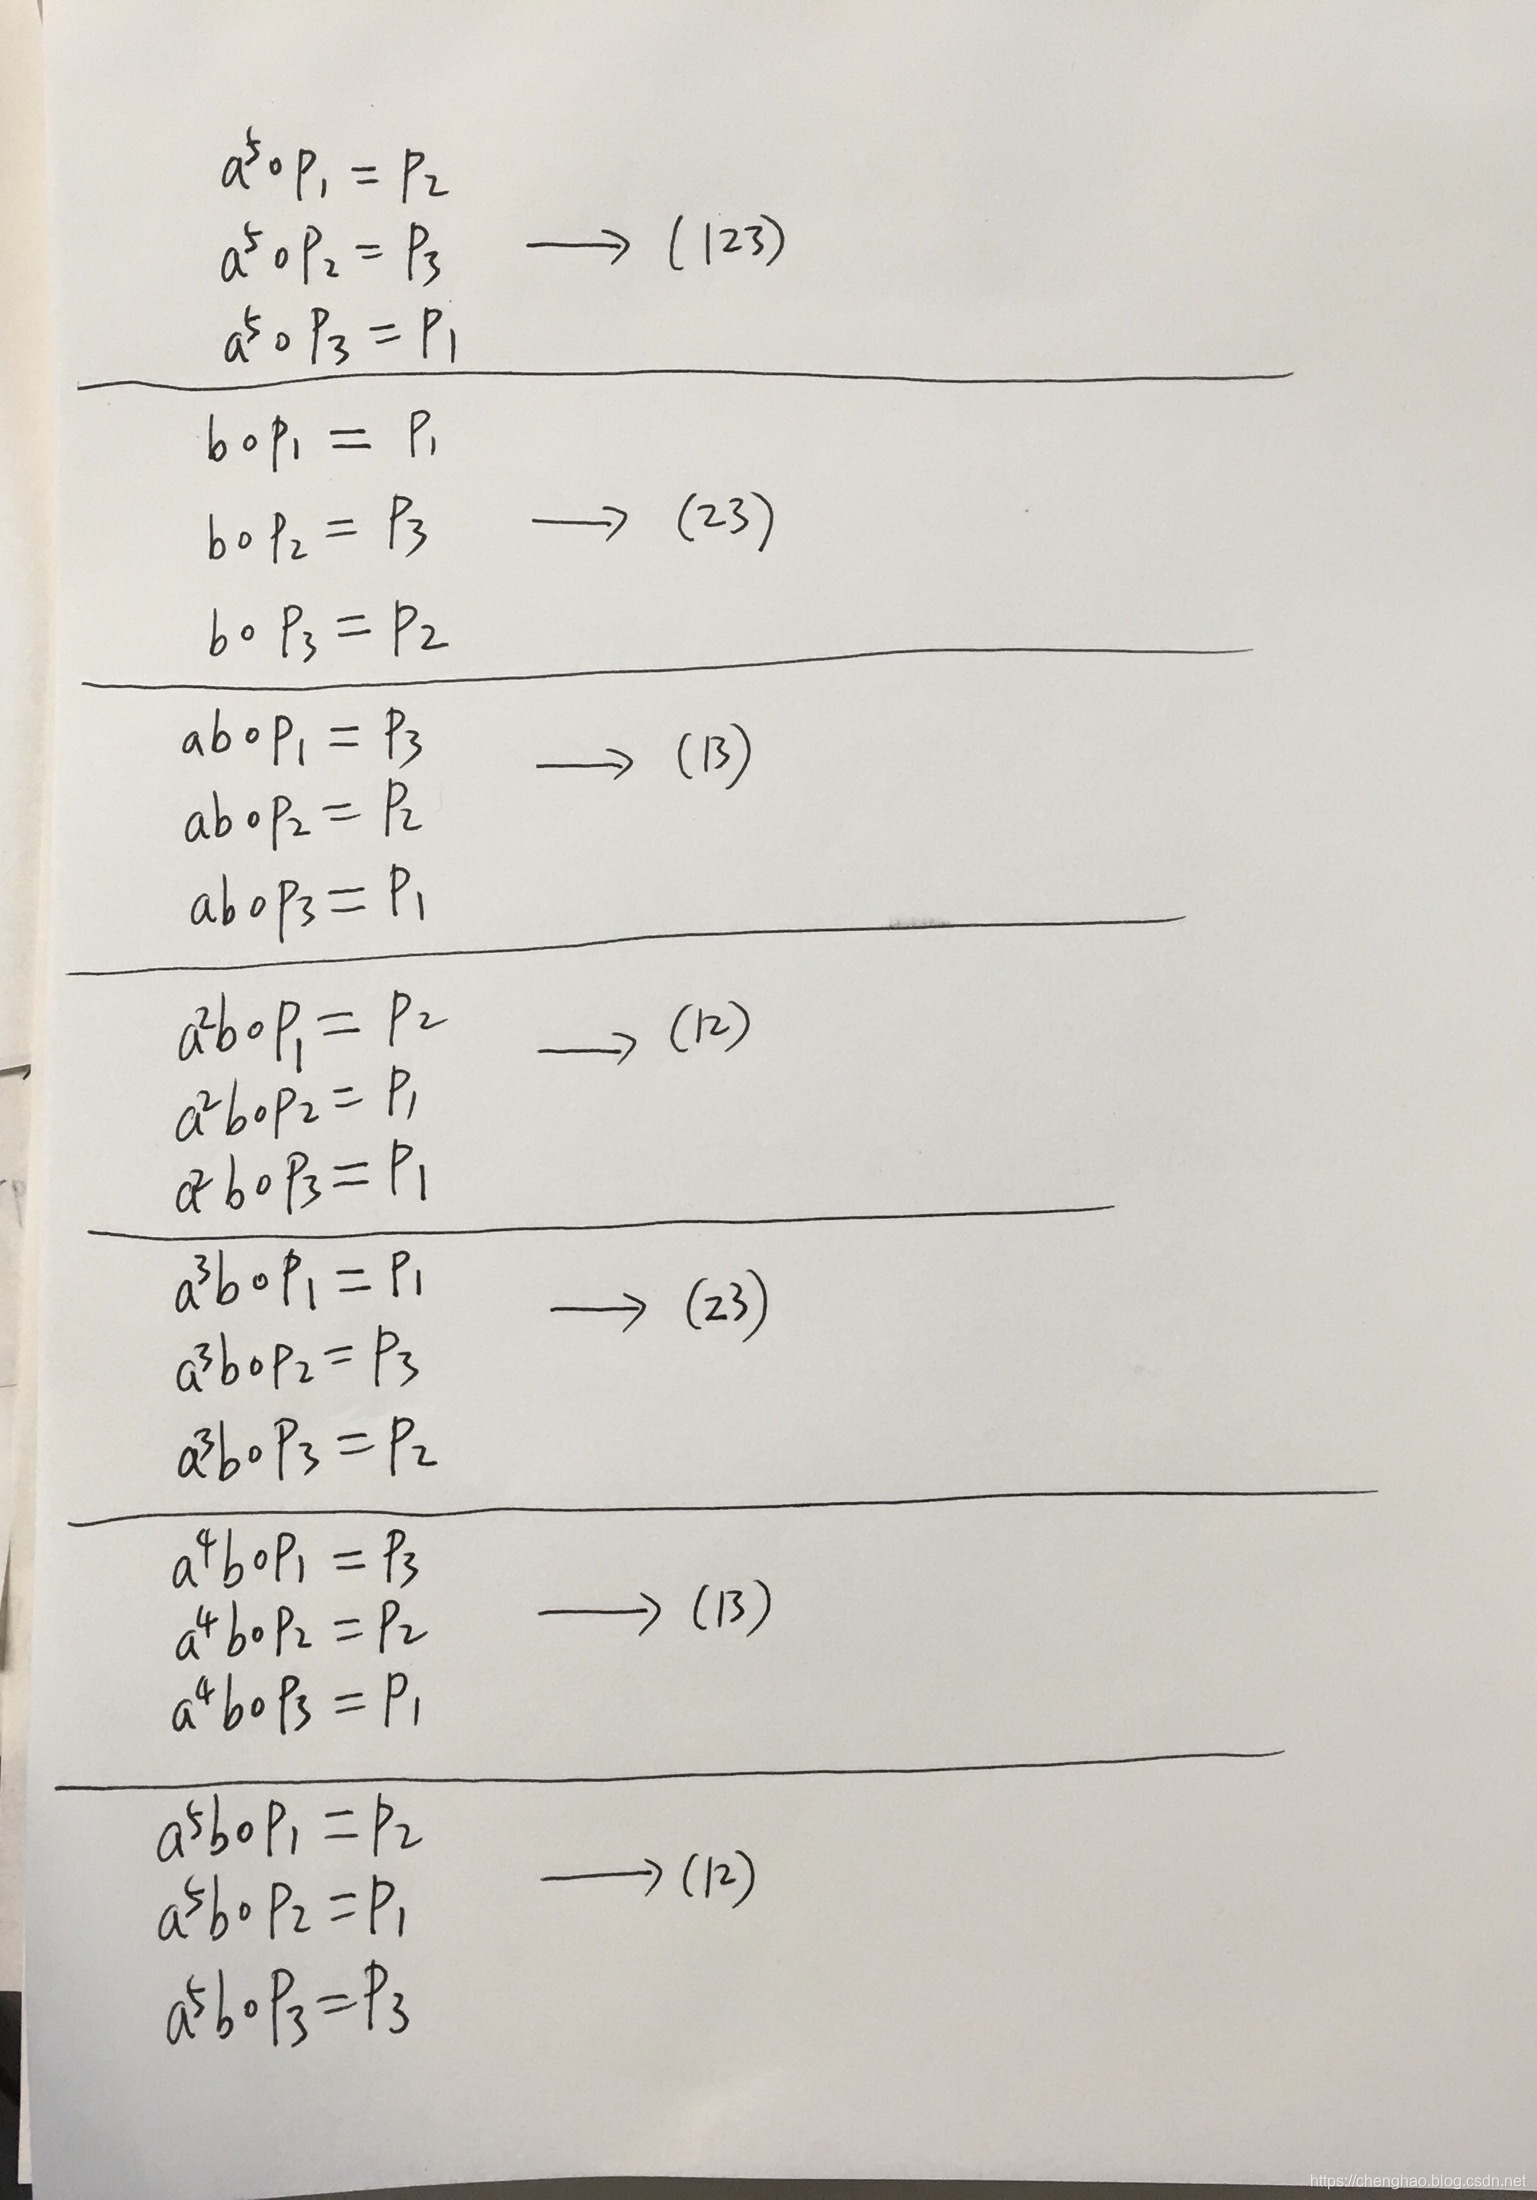 a⁵∘P₁ = P₂
a⁵∘P₂ = P₃ ⟶ (123)
a⁵∘P₃ = P₁
b∘P₁ = P₁
b∘P₂ = P₃ ⟶ (23)
b∘P₃ = P₂
ab∘P₁ = P₃ ⟶ (13)
ab∘P₂ = P₂
ab∘P₃ = P₁
a²b∘P₁ = P₂ ⟶ (12)
a²b∘P₂ = P₁
a²b∘P₃ = P₁
a³b∘P₁ = P₁ ⟶ (23)
a³b∘P₂ = P₃
a³b∘P₃ = P₂
a⁴b∘P₁ = P₃
a⁴b∘P₂ = P₂ ⟶ (13)
a⁴b∘P₃ = P₁
a⁵b∘P₁ = P₂
a⁵b∘P₂ = P₁ ⟶ (12)
a⁵b∘P₃ = P₃
https://chenghao.blog.csdn.net